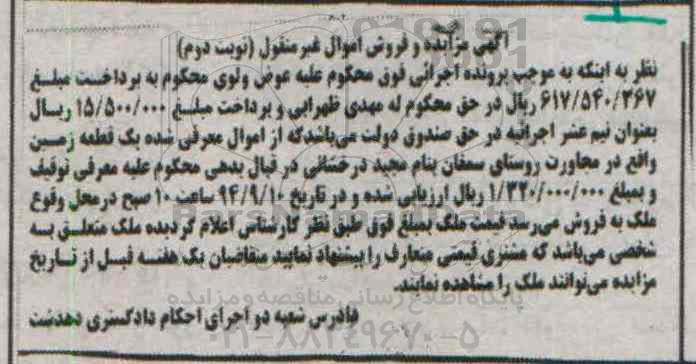 آگهی مزایده و فروش اموال غیر منقول (نوبت دوم)
نظر به اینکه به موجب پرونده اجرائی فوق محکوم علیه عوض ولوی محکوم به پرداخت مبلغ
۶۱۷/۵۴۰/۳۶۷ ریال در حق محکوم له مهدی ظهرابی و پرداخت مبلغ ۱۵/۵۰۰/۰۰۰ ریال
بعنوان نیم عشر اجرائیه در حق صندوق دولت می‌باشدکه از اموال معرفی شده یک قطعه زمین
واقع در مجاورت روستای سمغان بنام مجید درخشانی در قبال بدهی محکوم علیه معرفی توقیف
و بمبلغ ۱/۳۲۰/۰۰۰/۰۰۰ ریال ارزیابی شده و در تاریخ ۹۴/۹/۱۰ ساعت ۱۰ صبح درمحل وقوع
ملک به فروش می‌رسد قیمت ملک بمبلغ فوق طبق نظر کارشناس اعلام گردیده ملک متعلق به
شخصی می‌باشد که مشتری قیمتی متعارف را پیشنهاد نمایند متقاضیان یک هفته قبل از تاریخ
مزایده می‌توانند ملک را مشاهده نمایند.
پایگاه اطلاع رسانی مناقصه و مزایده
فادرس شعبه دو اجرای احکام دادگستری دهدشت
۰۲۱-۸۸۳۴۹۶۷۰-۵